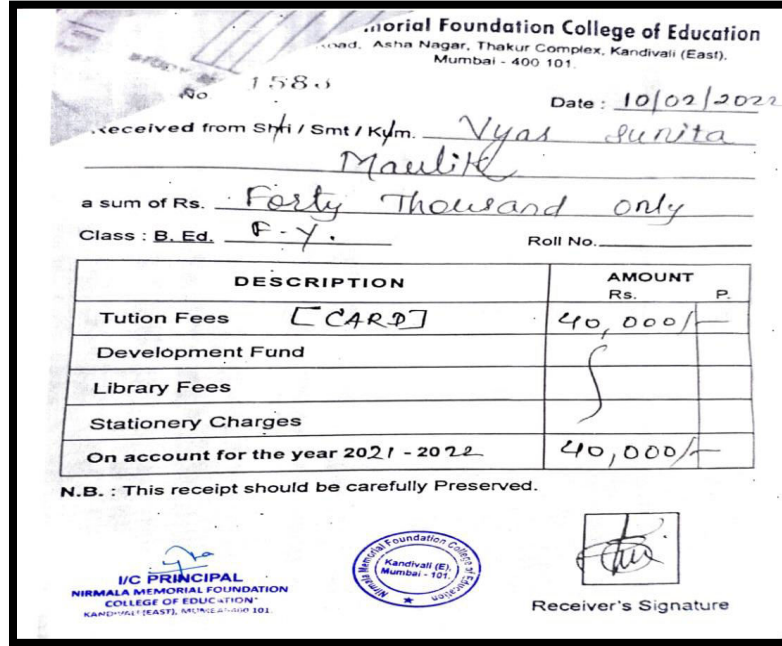 morial Foundation College of Education
oad, Asha Nagar, Thakur Complex, Kandivali (East),
Mumbai - 400 101.
No. 1583
Date : 10/02/2022
Received from Shri / Smt / Kum. Vyas Sunita
Maulik
a sum of Rs. Forty Thousand only
Class : B. Ed. F.Y. Roll No.
DESCRIPTION AMOUNT
Rs. P.
Tution Fees [CARD] 40,000/-
Development Fund
Library Fees
Stationery Charges
On account for the year 2021 - 2022 40,000/-
N.B. : This receipt should be carefully Preserved.
I/C PRINCIPAL
NIRMALA MEMORIAL FOUNDATION
COLLEGE OF EDUCATION
KANDIVALI (EAST), MUMBAI-400 101.
Nirmala Memorial Foundation College of Education
Kandivali (E),
Mumbai - 101.
Receiver's Signature